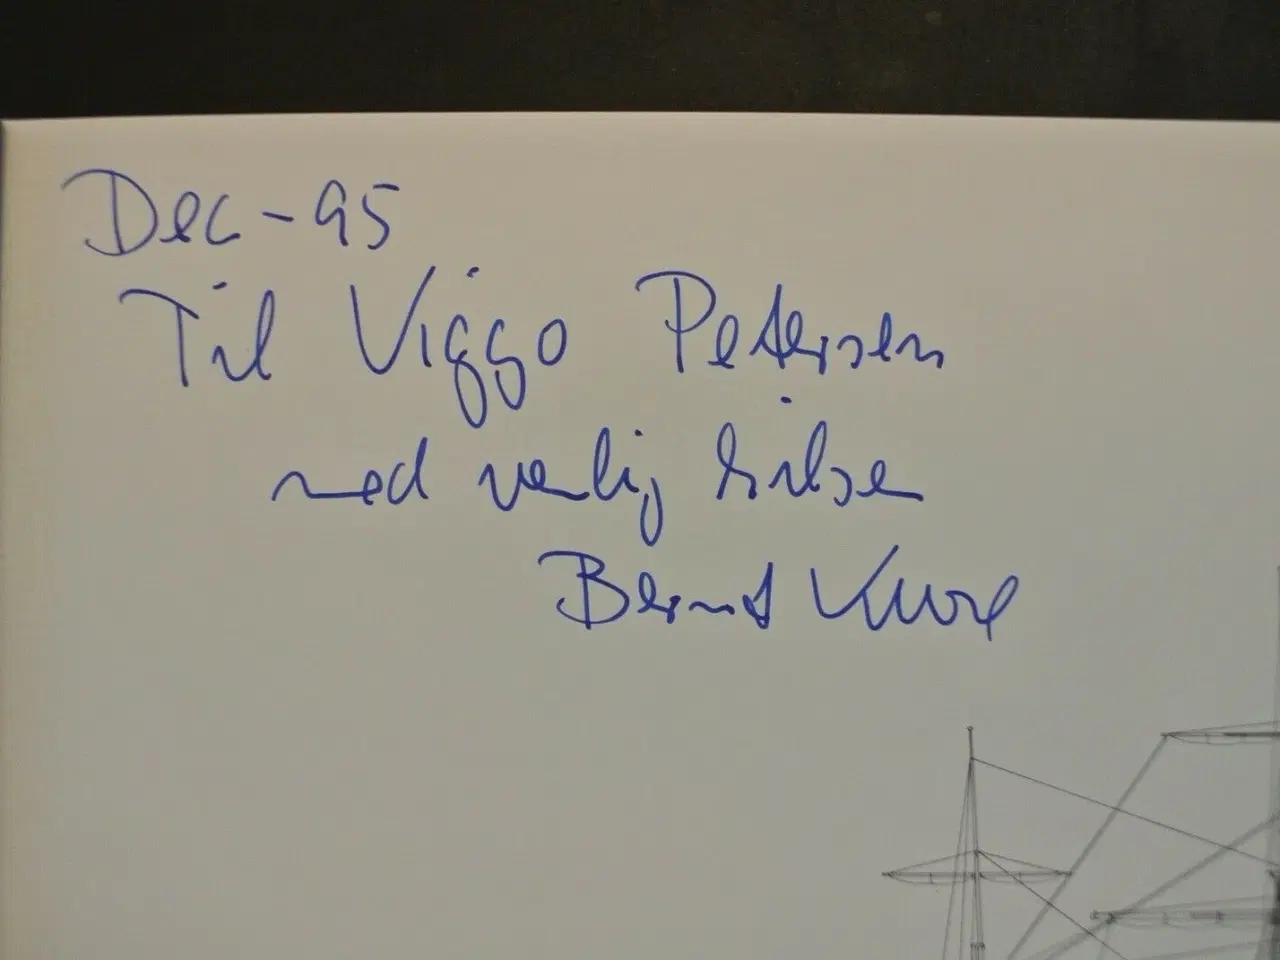 Dec - 95
Til Viggo Petersen
med venlig hilsen
Bernt Kure